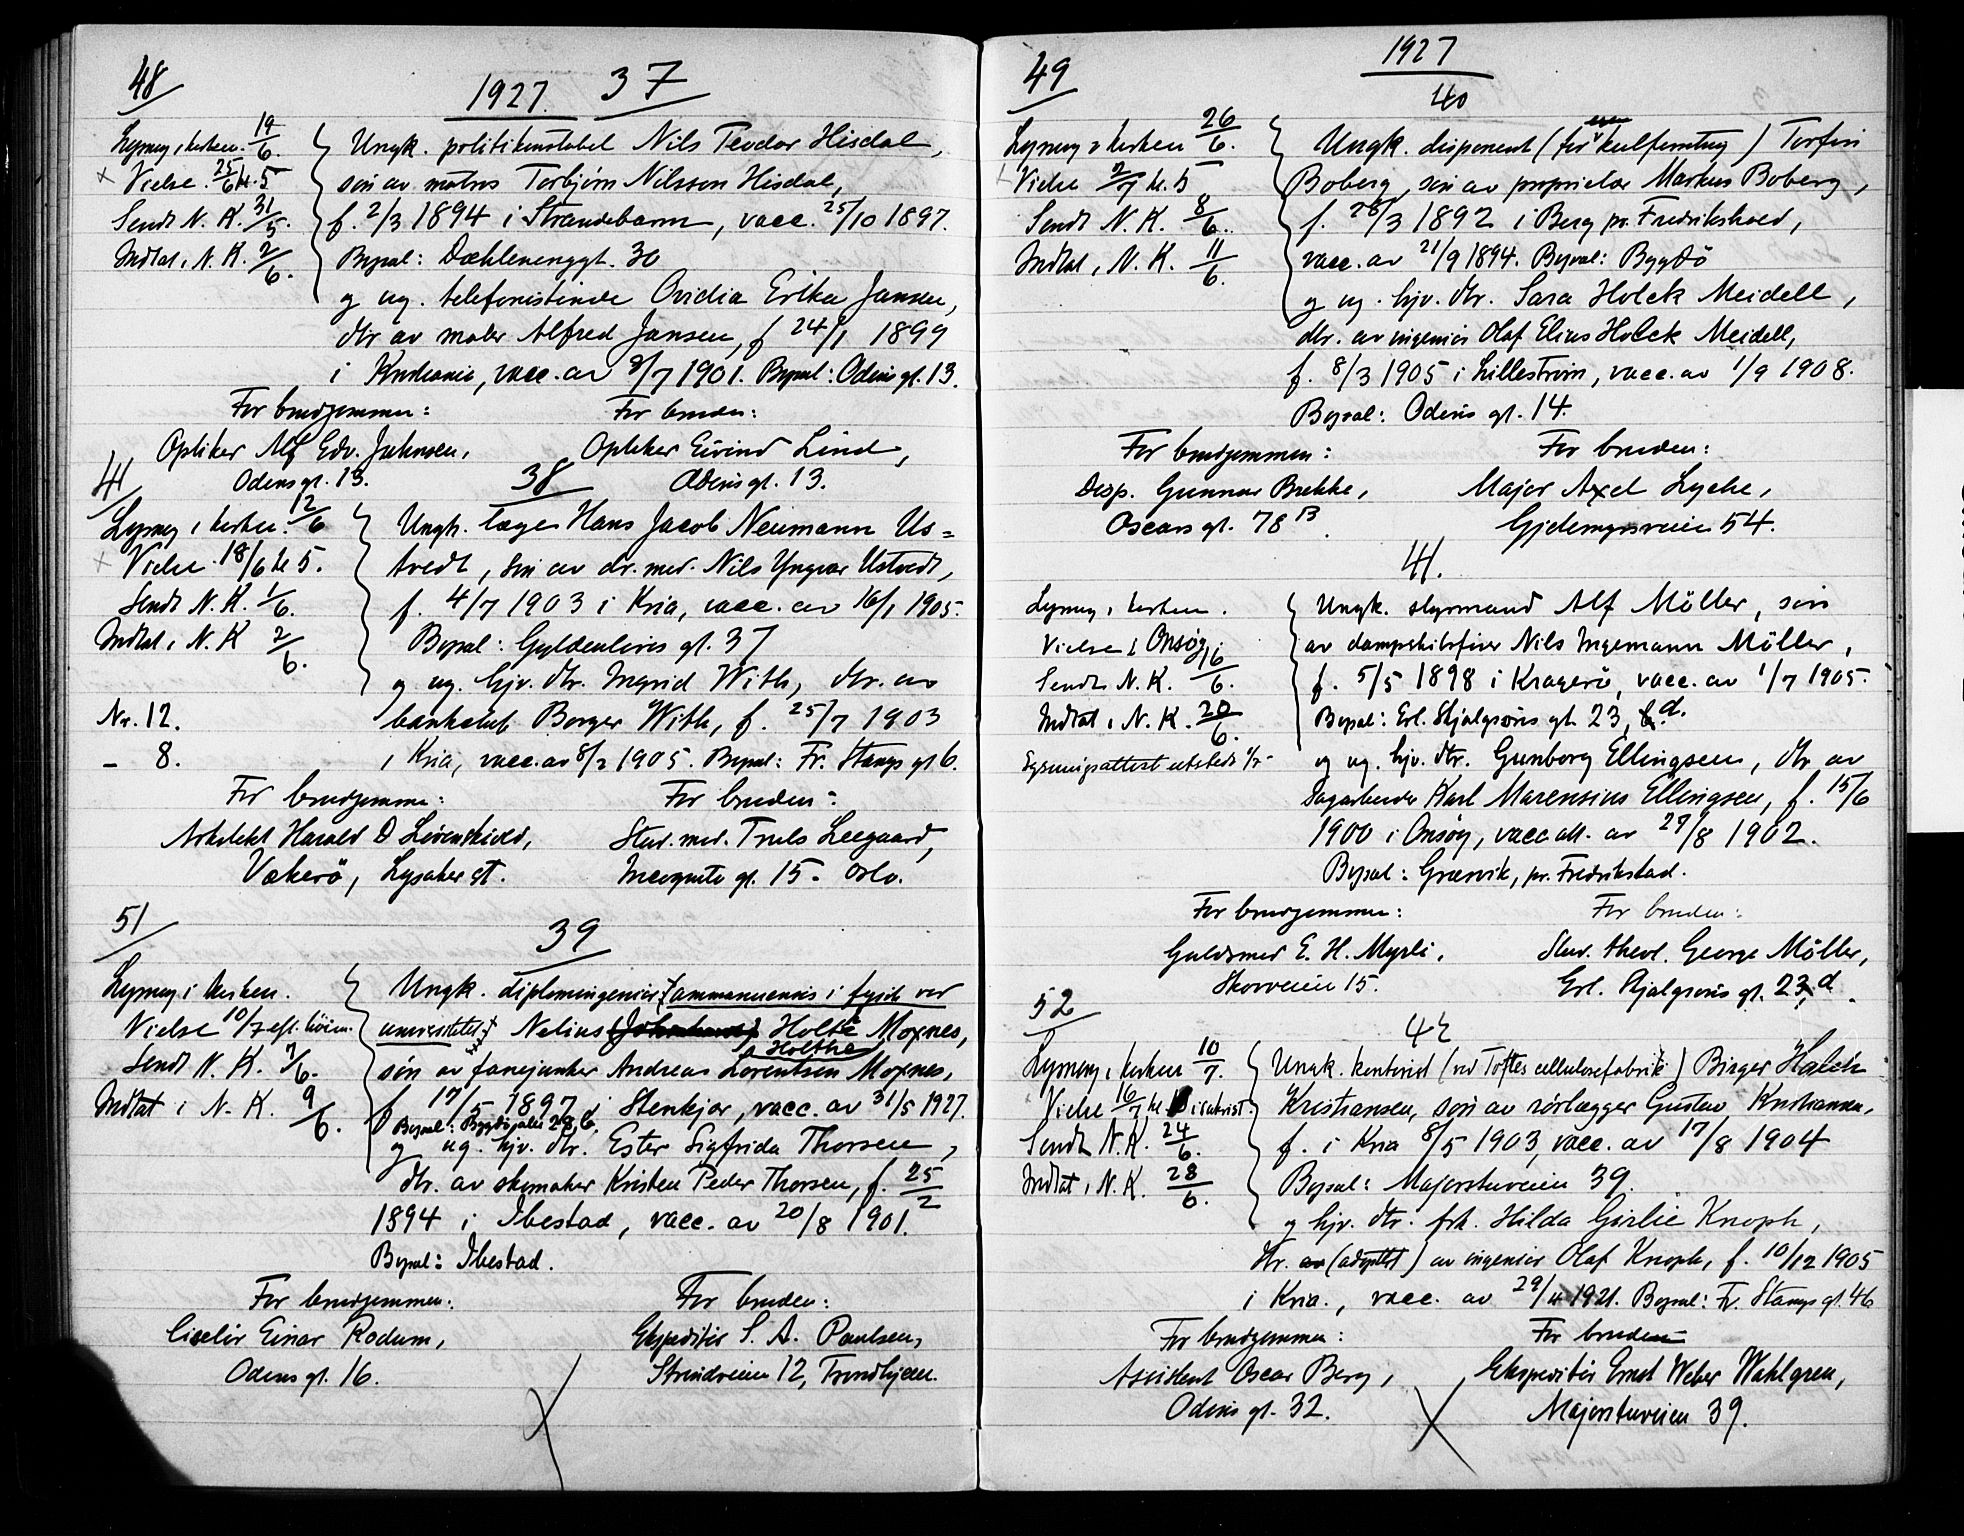 48
1927. 37
Lysning i kirken. 19/6. Ungk. politikonstabel Nils Teodor Hisdal,
x Vielse. 25/6 kl. 5 søn av matros Torbjørn Nilsson Hisdal,
Sendt N. K. 31/5. f. 2/3 1894 i Strandebarm, vacc. 25/10 1897.
Indtat i N. K. 2/6. Bopæl: Dæhlenenggt. 30
og ug. telefonistinde Ovidia Erika Jansen,
dtr av maler Alfred Jansen, f 24/1 1899
i Kristiania, vacc. av 9/7 1901. Bopæl: Odins gt. 13.
For brudgommen: For bruden:
Optiker Alf Edv. Johnsen, Optiker Eivind Lind,
Odens gt. 13. Odins gt. 13.
41 38
Lysning i kirken. 12/6 Ungk. læge Hans Jacob Neumann Us=
x Vielse 18/6 kl 5. tvedt, søn av dr. med. Nils Yngvar Ustvedt,
Sendt N. K. 1/6. f. 4/7 1903 i Kria, vacc. av 16/1 1905.
Indtat i N. K 2/6. Bopæl: Gyldenløves gt. 37
og ug. hjv. dtr. Ingrid With, dtr. av
Nr. 12. bankchef Borger With, f. 25/7 1903
- 8. i Kria, vacc. av 8/2 1905. Bopæl: Fr. Stangs gt 6.
For brudgomme: For bruden:
Arkitekt Harald D Løvenskiold, Stud. med. Truls Leegaard,
Vækerö, Lysaker st. Incognito gt. 15. Oslo.
51
39
Lysning i kirken. Ungk. diplomingeniør (ammanuensis i fysik ved
Vielse 10/7 eft. høim. universitetet) Nelius Holte Moxnes,
Holthe
Sendt N. K. 7/6. søn av fanejunker Andreas Lorentsen Moxnes,
Indtat i N. K. 9/6. f 17/5 1897 i Stenkjær, vacc. av 31/5 1927.
Bopæl: Bygdöyalle 28, 6.
og ug. hjv. dtr. Ester Sigfrida Thorsen,
dtr. av skomaker Kristen Peder Thorsen, f. 25/2
1894 i Ibestad, vacc. av 20/8 1901.
Bopæl: Ibestad.
For brudgommen: For bruden:
Ciselør Einar Rodum, Ekspeditør S. A. Paulsen,
Odens gt. 16. Strindveien 12, Trondhjem.
49
1927
40
Lysning i kirken 26/6. Ungk. disponent (for kulforretning) Torfin
Vielse 2/7 kl. 5 Boberg, søn av proprietær Markus Boberg,
Sendt N. K. 8/6. f. 28/3 1892 i Berg pr. Fredrikshald,
Indtat i N. K. 11/6. vacc. av 21/9 1894. Bopæl: Bygdö
og ug. hjv. dtr. Sara Holck Meidell,
dtr. av ingeniør Olaf Elias Holck Meidell,
f. 8/3 1905 i Lilleström, vacc. av 1/9 1908.
Bopæl: Odins gt. 14.
For brudgommen: For bruden:
Disp. Gunnar Brekke, Major Axel Lycke,
Oscars gt. 78 B. Gjedemyrsveien 54.
41.
Lysning i kirken. Ungk. styrmand Alf Möller, søn
Vielse i Onsøy. av dampskibsfører Nils Ingemann Möller,
Sendt N. K. 16/6. f. 5/5 1898 i Kragerö, vacc. av 1/7 1905.
Indtat i N. K. 20/6. Bopæl: Erl. Skjalgsøns gt. 23, d.
Lysningsattest utstedt 1/7 og ug. hjv. dtr. Gunborg Ellingsen, dtr av
Sagarbeider Karl Marensius Ellingsen, f. 15/6
1900 i Onsøy, vacc att. av 27/8 1902.
Bopæl: Græsvik, pr. Fredrikstad.
For brudgommen: For bruden:
Guldsmed E. H. Myrli, Stud. theol. George Möller,
Skovveien 15. Erl. Skjalgsøns gt. 23, d.
52
42
Lysning i kirken 10/7. Ungk. kontorist (ved Toftes cellulosefabrik) Birger Hatch
Vielse 16/7 kl. i sakrist. Kristiansen, søn av rörlægger Gustav Kristiansen,
Sendt N. K. 24/6. f. i Kria 8/5 1903, vacc. av 17/8 1904
Indtat i N. K. 28/6. Bopæl: Majorstuveien 39.
og hjv. dtr. frk. Hilda Girlie Knoph,
dtr. av (adoptert) av ingeniør Olaf Knoph, f. 10/12 1905
i Kria., vacc. av 29/4 1921. Bopæl: Fr. Stangs gt. 46
For brudgommen: For bruden
Assistent Oscar Berg, Ekspeditör Ernst Weber Wahlgren,
Odins gt. 32. Majorstuveien 39.